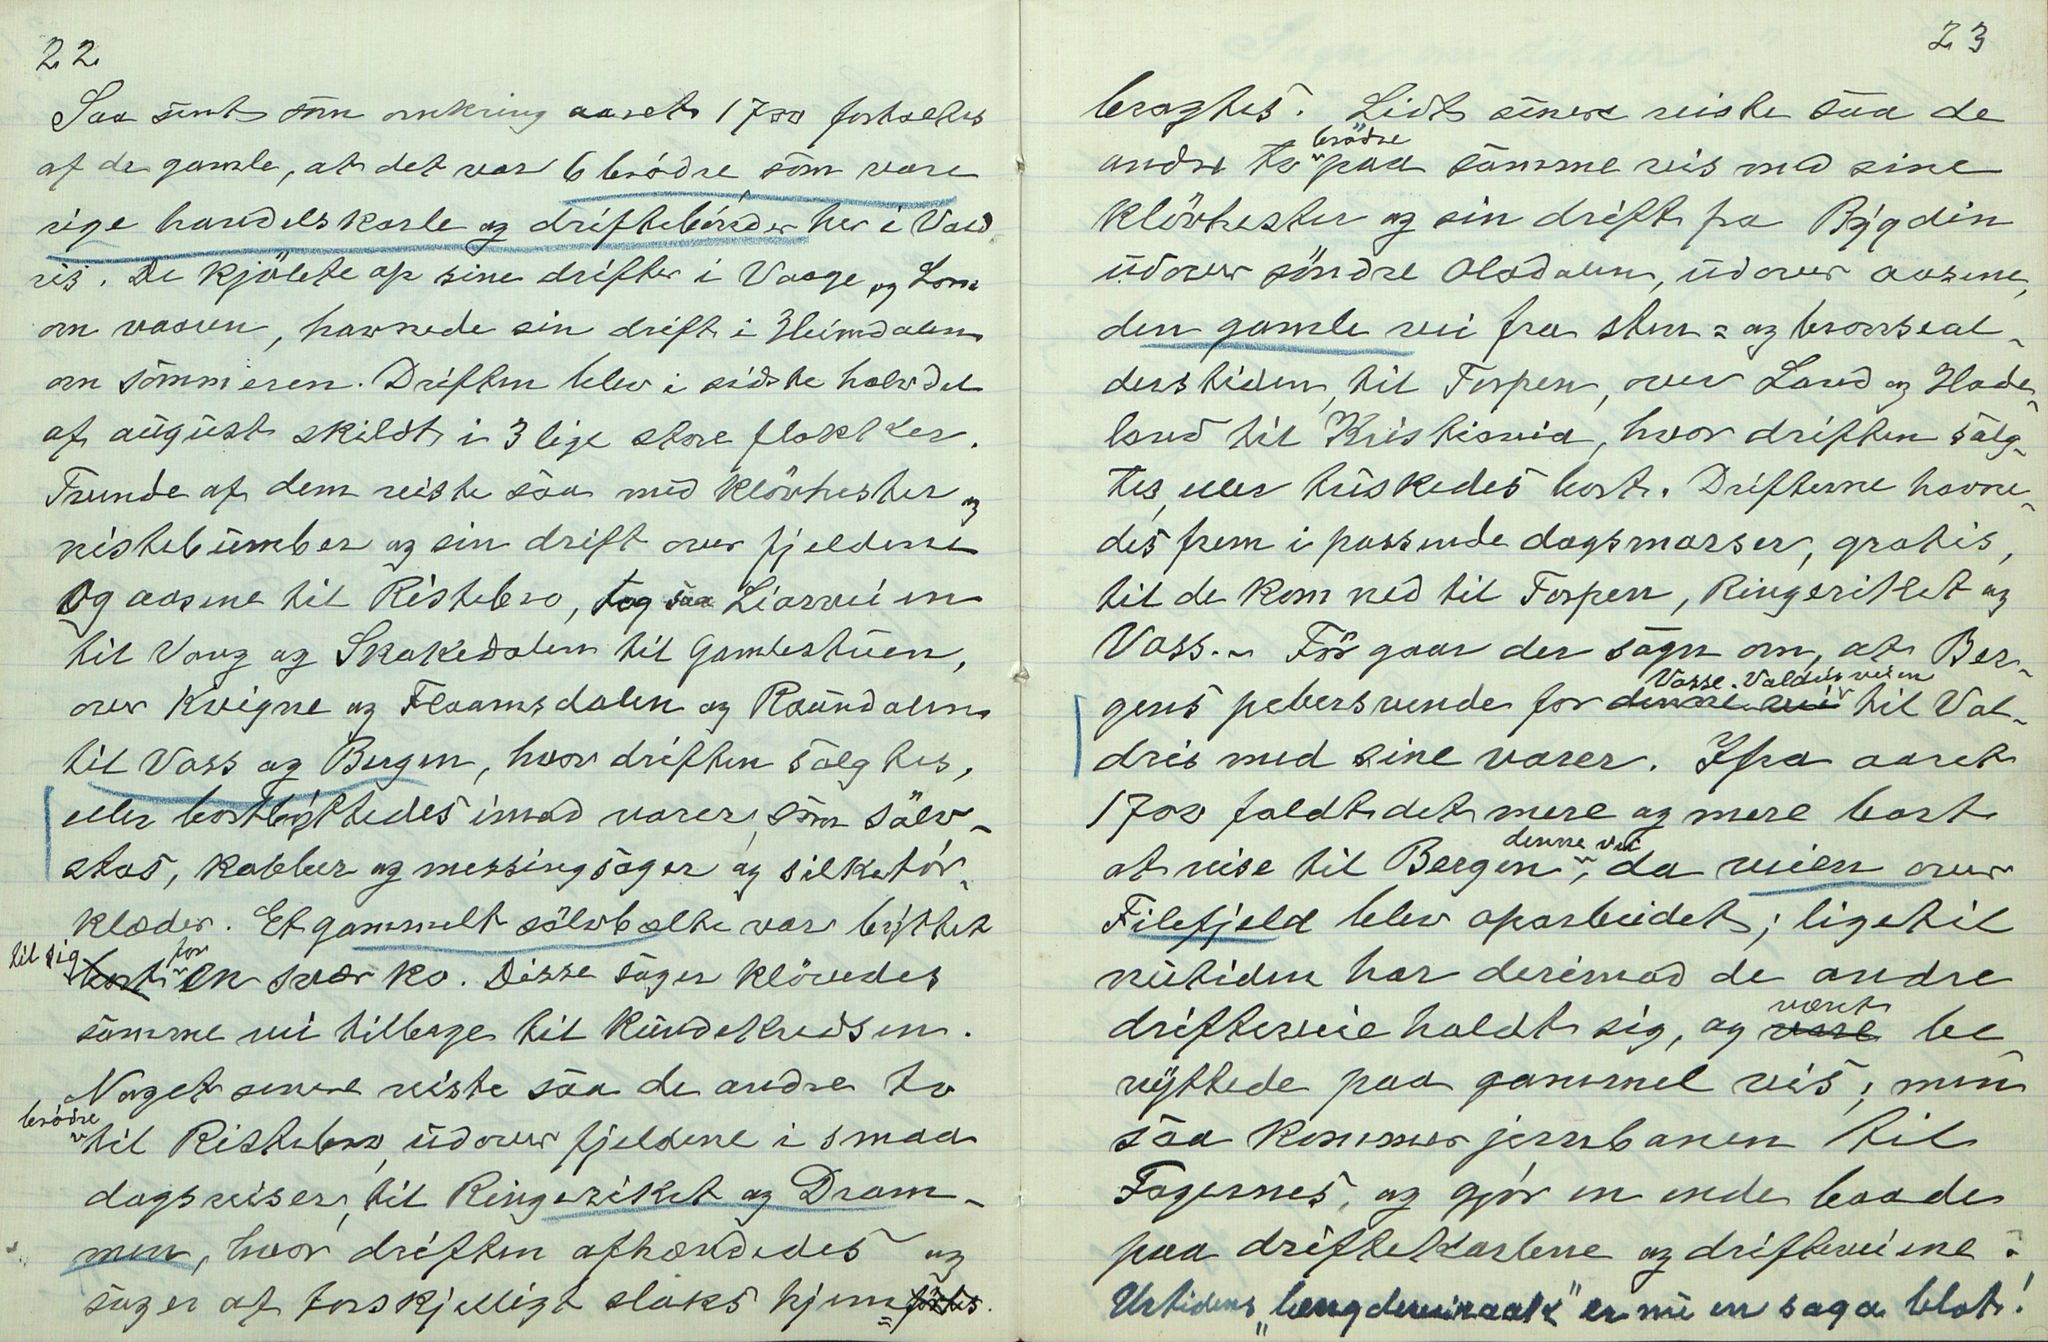 22
Saa sent som omkring aaret 1700 fortaltes
af de gamle, at det var 6 brødre, som vare
rige handelskarle og driftebönder her i Vald
ris. De kjöbte op sine drifter i Vaage og Lom
om vaaren, havnede sin drift i Heimdalen
om sommeren. Driften blev i sidste halvdel
af august skildt i 3 lige store flokker.
Tvende af dem reiste saa med klövhester og
nistebumber og sin drift over fjeldene
og aasene til Ristebro, tog saa Liaveien
til Vang og Skakedalen til Gamlestuen,
over Kvigne og Flaamsdalen og Raundalen
til Voss og Bergen, hvor driften sælgtes,
eller bortbyttedes imod varer, som sölv-
stas, kobber og messingsager og silketör-
klæder. Et gammelt sölvbælte var byttet
til sig bort for en svær ko. Disse sager klövedes
samme vei tilbage til kundekredsen.
Noget senere reiste saa de andre to
brødre til Ristebro, udover fjeldene i smaa
dagsreiser, til Ringeriket og Dram-
men, hvor driften afhændedes og
sager af forskjelligt slaks hjem førtes.
23
bragtes. Lidt senere reiste saa de
andre to brödre paa samme vis med sine
klövhester og sin drift fra Bygdin
udover söndre Olsdalen, udover aasene,
den gamle vei fra sten- og bronseal-
derstiden, til Torpen, over Land og Hade-
land til Kristiania, hvor driften sælg-
tes, eller tuskedes bort. Drifterne havne-
des frem i passende dagsmarser, gratis,
til de kom ned til Torpen, Ringeriket og
Voss. – För gaar der sagn om, at Ber-
gens pebersvende for denne vei Vosse-Valdrisveien til Val-
dris med sine varer. Ifra aaret
1700 faldt det mere og mere bort
at reise til Bergen denne vei, da veien over
Filefjeld blev oparbeidet; ligetil
nutiden har derimod de andre
drifteveie holdt sig, og vare været be
nyttede paa gammel vis; men
saa kommer jernbanen til
Fagernes, og gjör en ende baade
paa driftekarlene og drifteveiene:
Urtidens "længdeveiraak" er nu en saga blot!